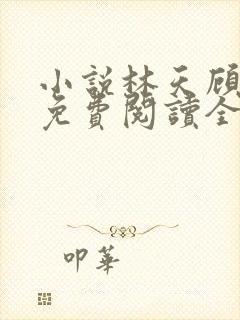 小說林天顧
免費閱讀全
叩華